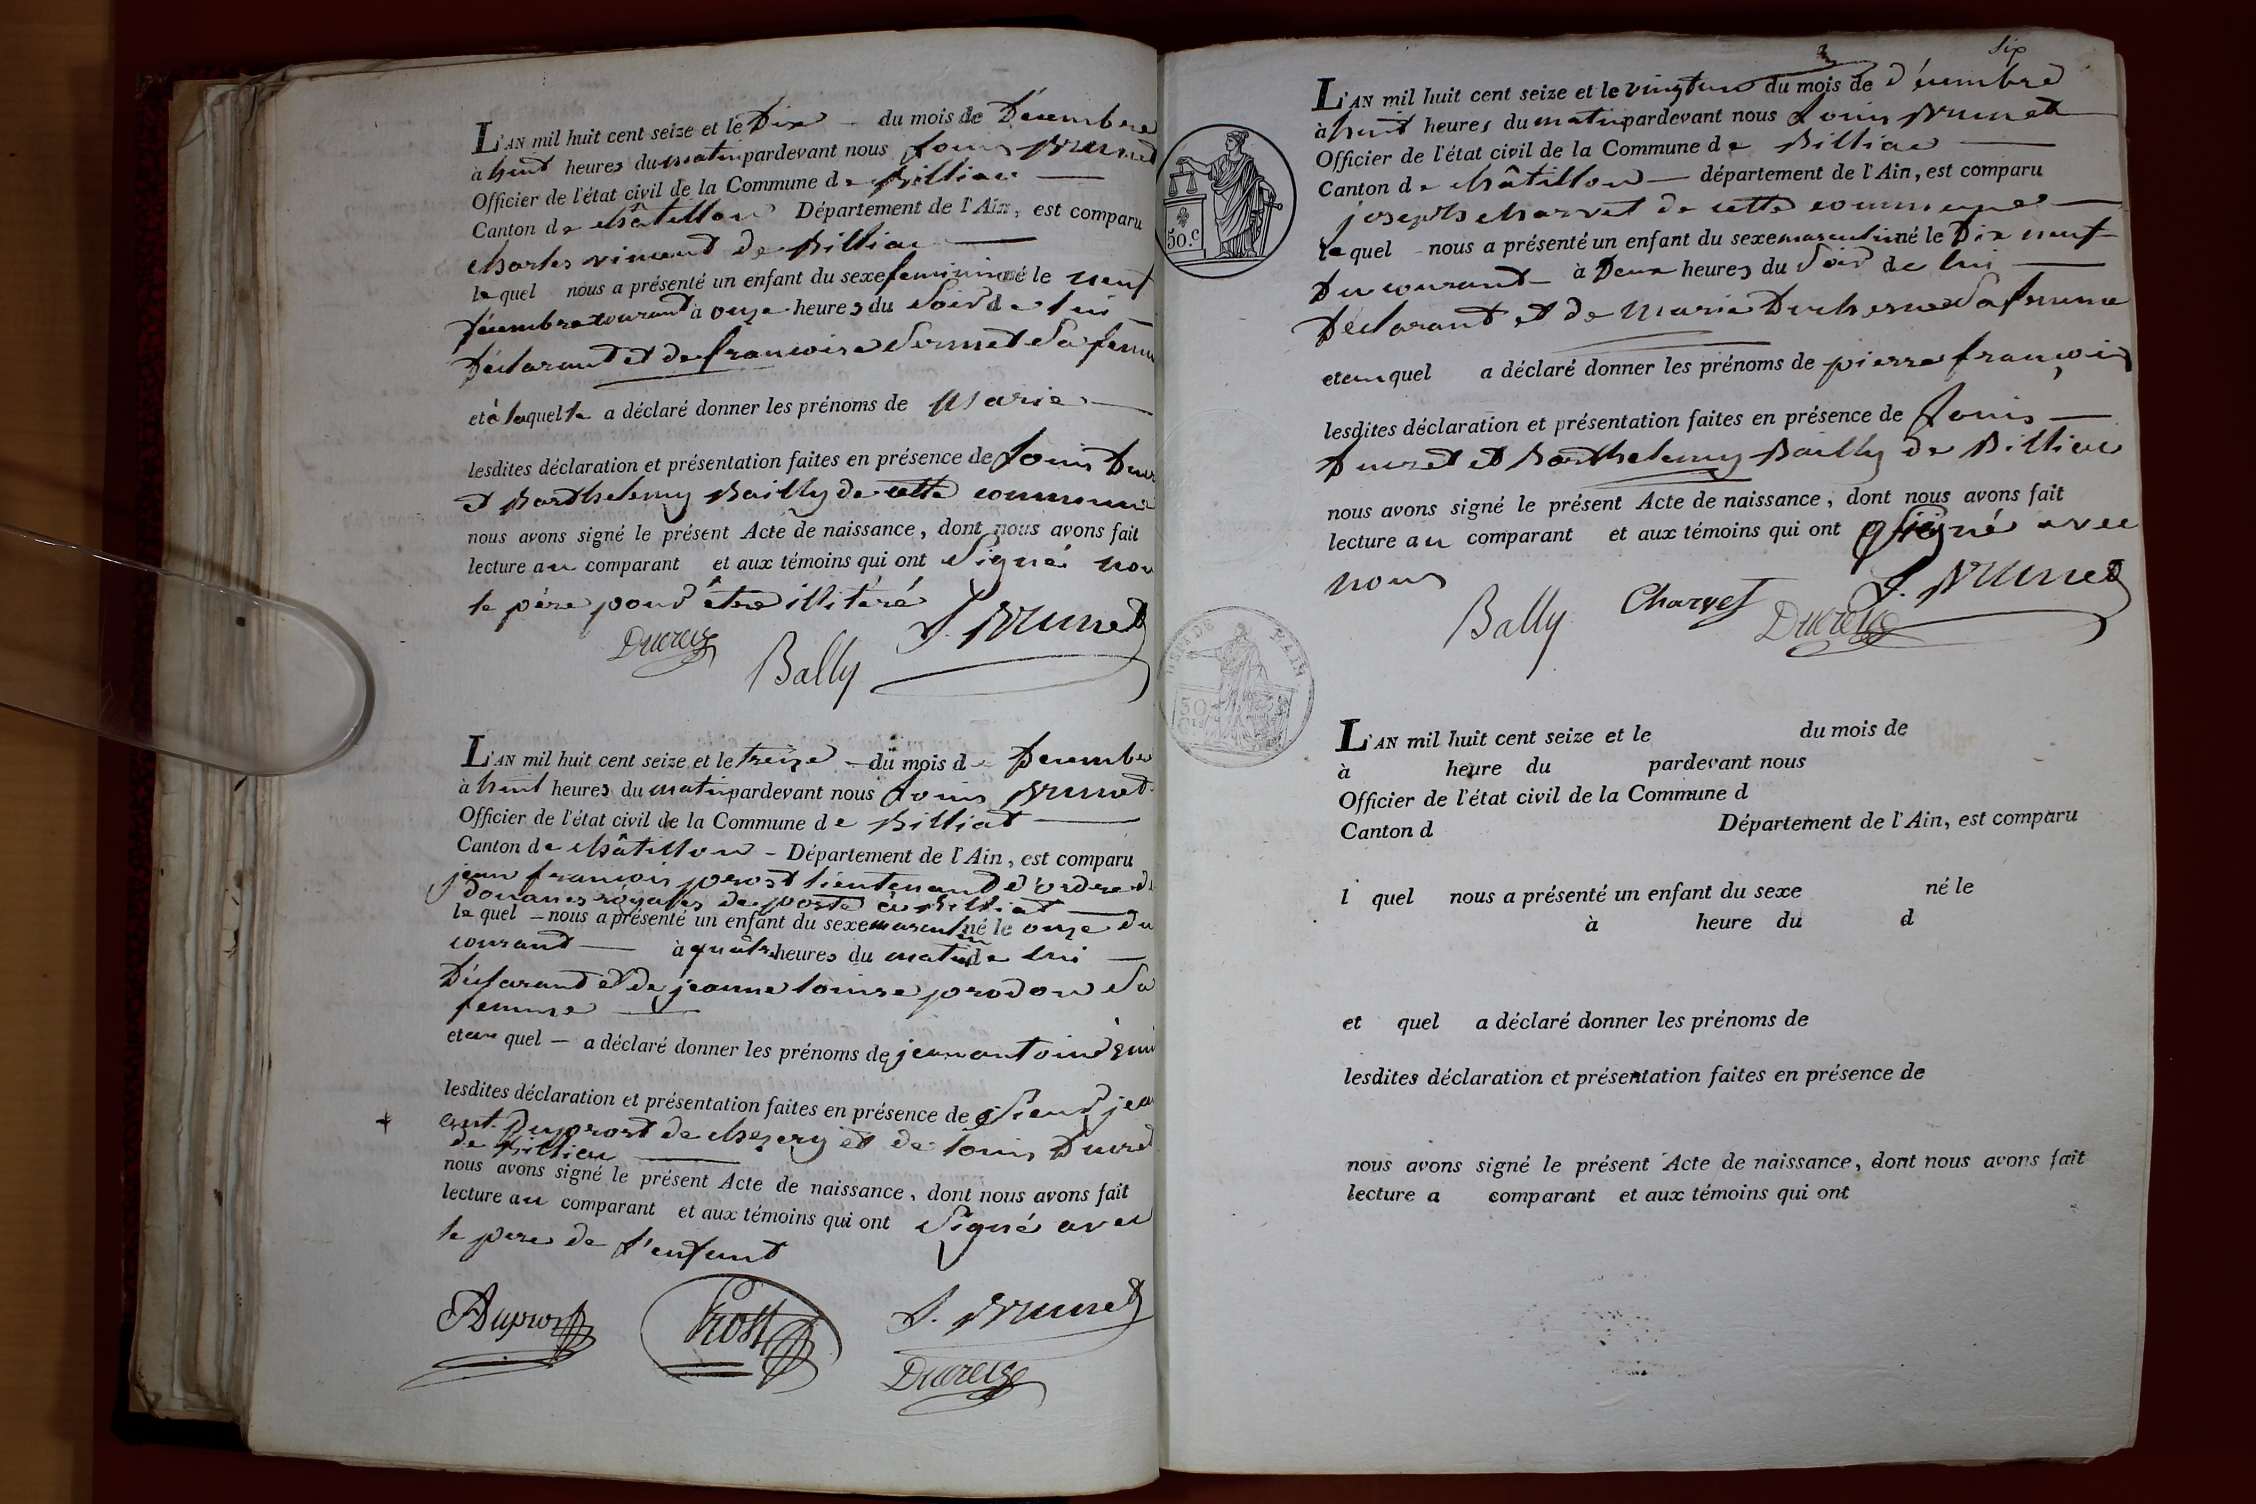 L'AN mil huit cent seize et le Dix du mois de Décembre
à huit heures du matin pardevant nous Louis Brunet
Officier de l'état civil de la Commune de Billiac
Canton de Châtillon Département de l'Ain, est comparu
Charles vincent de Billiac
lequel nous a présenté un enfant du sexe feminin né le neuf
Décembre courant à onze heures du Soir de lui
Déclarant et de françoise Sermet Sa femme
et à laquelle a déclaré donner les prénoms de Marie
lesdites déclaration et présentation faites en présence de Louis
et Barthelemy Bailly de cette commune
nous avons signé le présent Acte de naissance, dont nous avons fait
lecture au comparant et aux témoins qui ont Signé non
le père pour être illitéré
L. Brunet
Ducrey
Bally
L'AN mil huit cent seize et le treize du mois de Décembre
à huit heures du matin pardevant nous Louis Brunet
Officier de l'état civil de la Commune de Billiat
Canton de Châtillon Département de l'Ain, est comparu
jean françois prost lieutenant d'ordre de
douanes royales de poste à Billiat
lequel nous a présenté un enfant du sexe masculin né le onze du
courant à quatre heures du matin de lui
Déclarant et de jeanne louise prodon Sa
femme
et au quel a déclaré donner les prénoms de jean antoine
lesdites déclaration et présentation faites en présence de Sieur jean
ant. Duprost de chezery et de louis Ducret
de Billiac
nous avons signé le présent Acte de naissance, dont nous avons fait
lecture au comparant et aux témoins qui ont Signé avec
le pere de l'enfant
Duprost
Prost
L. Brunet
Ducrey
Six
L'AN mil huit cent seize et le vingt un du mois de décembre
à huit heures du matin pardevant nous Louis Brunet
Officier de l'état civil de la Commune de Billiac
Canton de Châtillon département de l'Ain, est comparu
joseph charvet de cette commune
lequel nous a présenté un enfant du sexe masculin né le Dix neuf
Du courant à Deux heures du Soir de lui
Déclarant et de Marie Duchesne Sa femme
et au quel a déclaré donner les prénoms de pierre françois
lesdites déclaration et présentation faites en présence de Louis
Ducret et Barthelemy Bailly de Billiac
nous avons signé le présent Acte de naissance, dont nous avons fait
lecture au comparant et aux témoins qui ont signé avec
nous
L. Brunet
Bally
Charvet
Ducrey
50.c
L'AN mil huit cent seize et le du mois de
à heure du pardevant nous
Officier de l'état civil de la Commune d
Canton d Département de l'Ain, est comparu
l quel nous a présenté un enfant du sexe né le
à heure du d
et quel a déclaré donner les prénoms de
lesdites déclaration et présentation faites en présence de
nous avons signé le présent Acte de naissance, dont nous avons fait
lecture a comparant et aux témoins qui ont